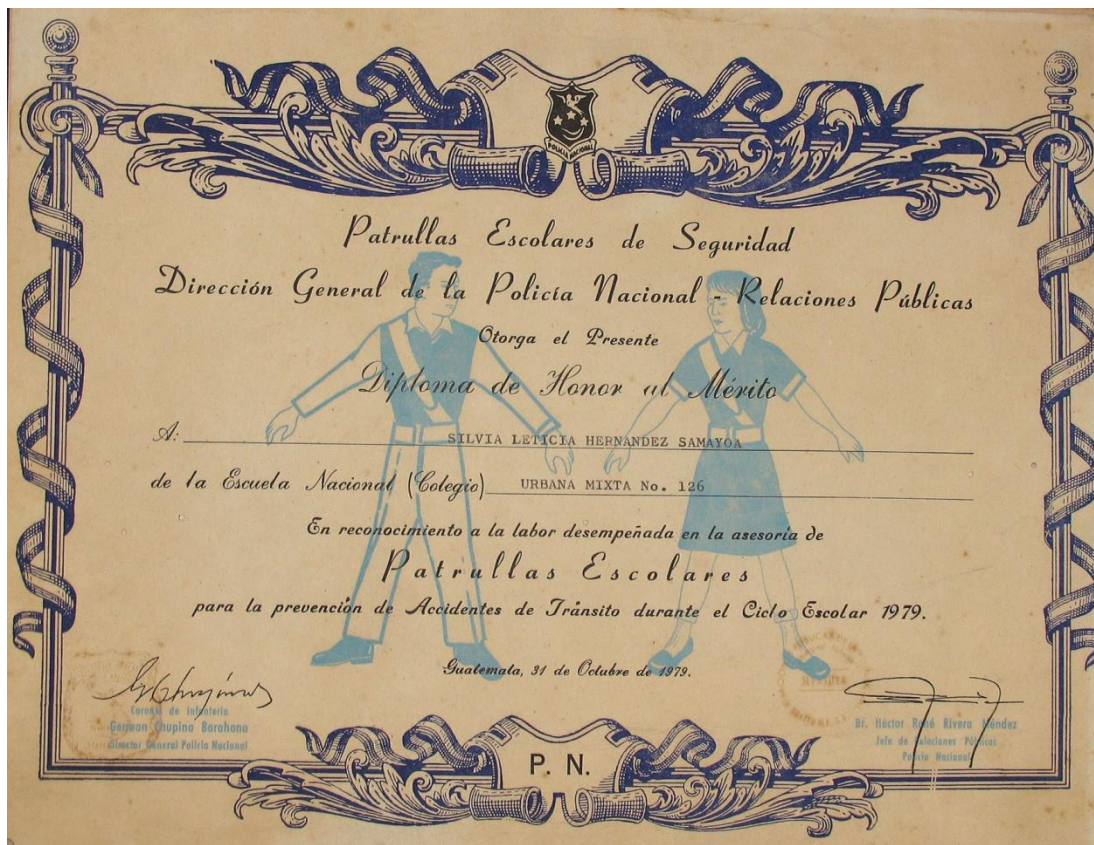 POLICIA NACIONAL
Patrullas Escolares de Seguridad
Dirección General de la Policía Nacional - Relaciones Públicas
Otorga el Presente
Diploma de Honor al Mérito
A: SILVIA LETICIA HERNANDEZ SAMAYOA
de la Escuela Nacional (Colegio) URBANA MIXTA No. 126
En reconocimiento a la labor desempeñada en la asesoría de
Patrullas Escolares
para la prevención de Accidentes de Tránsito durante el Ciclo Escolar 1979.
Guatemala, 31 de Octubre de 1979.
Coronel de Infantería
German Chupina Barahona
Director General Policía Nacional
Br. Héctor René Rivera Méndez
Jefe de Relaciones Públicas
Policía Nacional
P. N.